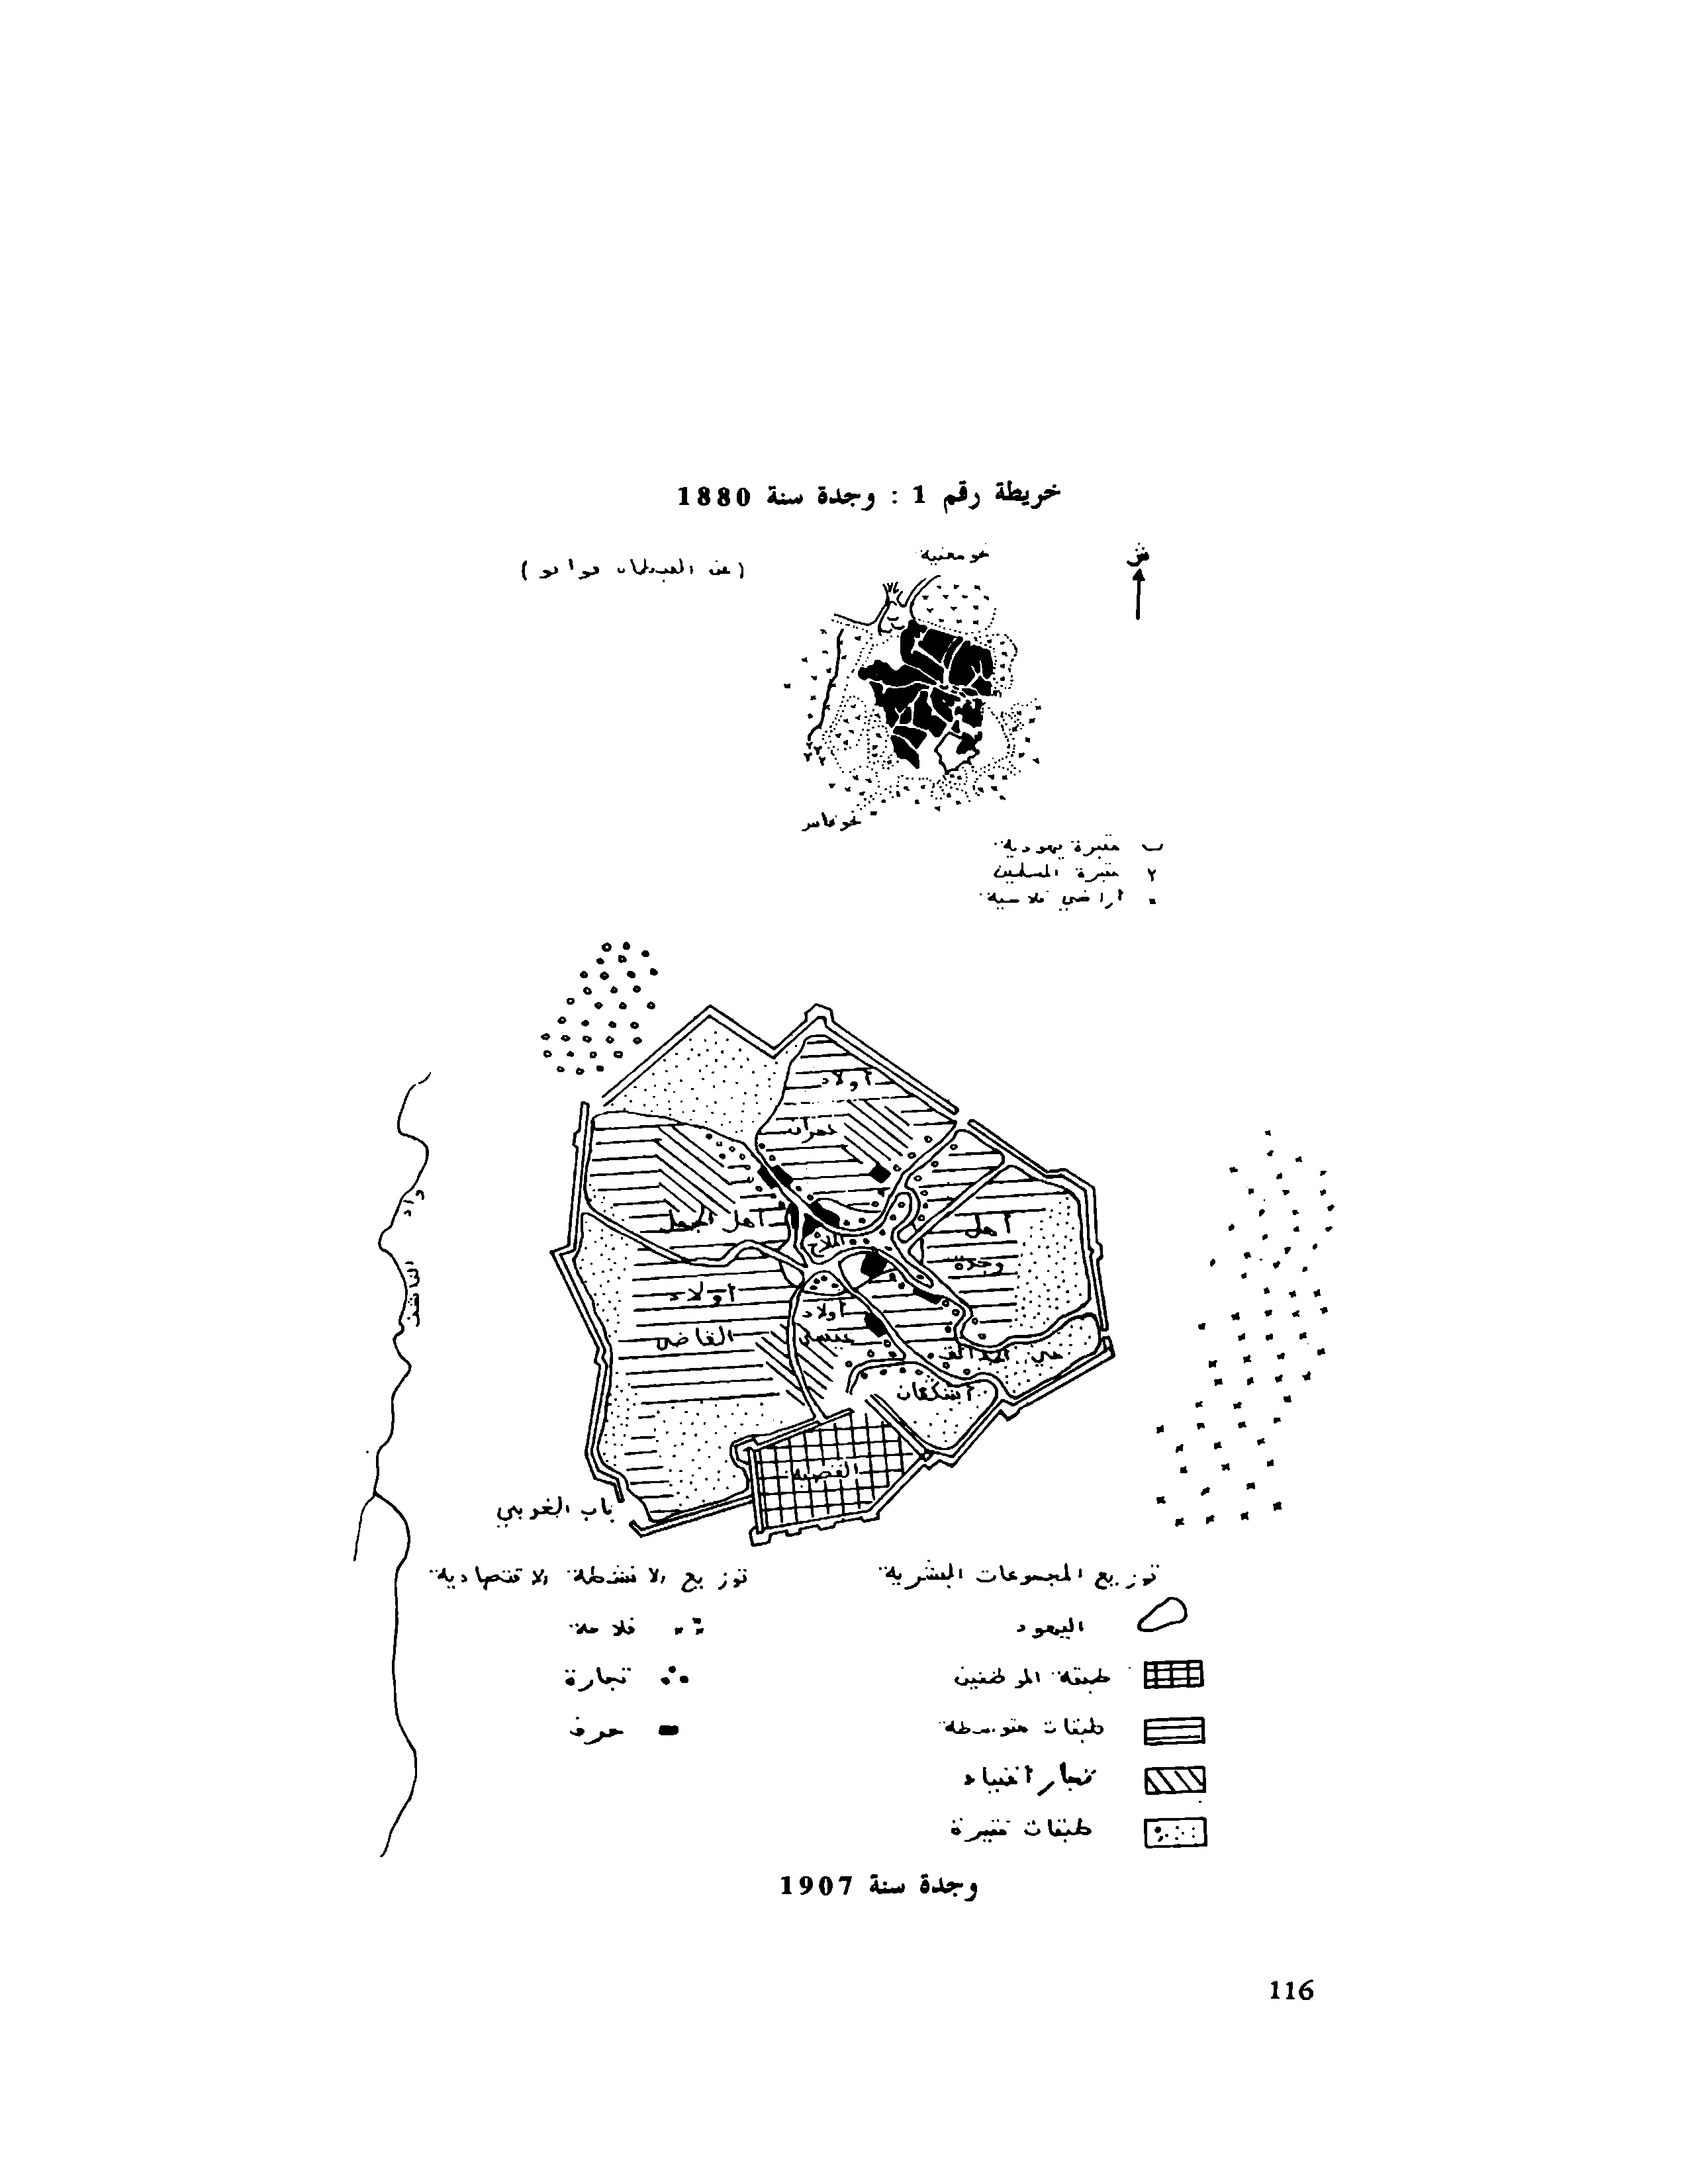 خريطة رقم 1 : وجدة سنة 1880
نحو مغنية
ش
(عن القبطان فوانو)
نحو فاس
ب مقبرة يهودية
٢ مقبرة المسلمين
أراضي فلاحية
أولاد
عمران
أهل الجمل
الملاح
أهل
وجدة
أولاد
القاضي
أولاد
عيسى
حي
أشكفان
القصبة
واد
الناشف
باب الغربي
توزيع المجموعات البشرية
اليهود
طبقة الموظفين
طبقات متوسطة
تجار أغنياء
طبقات فقيرة
توزيع الانشطة الاقتصادية
فلاحة
تجارة
حرف
وجدة سنة 1907
116